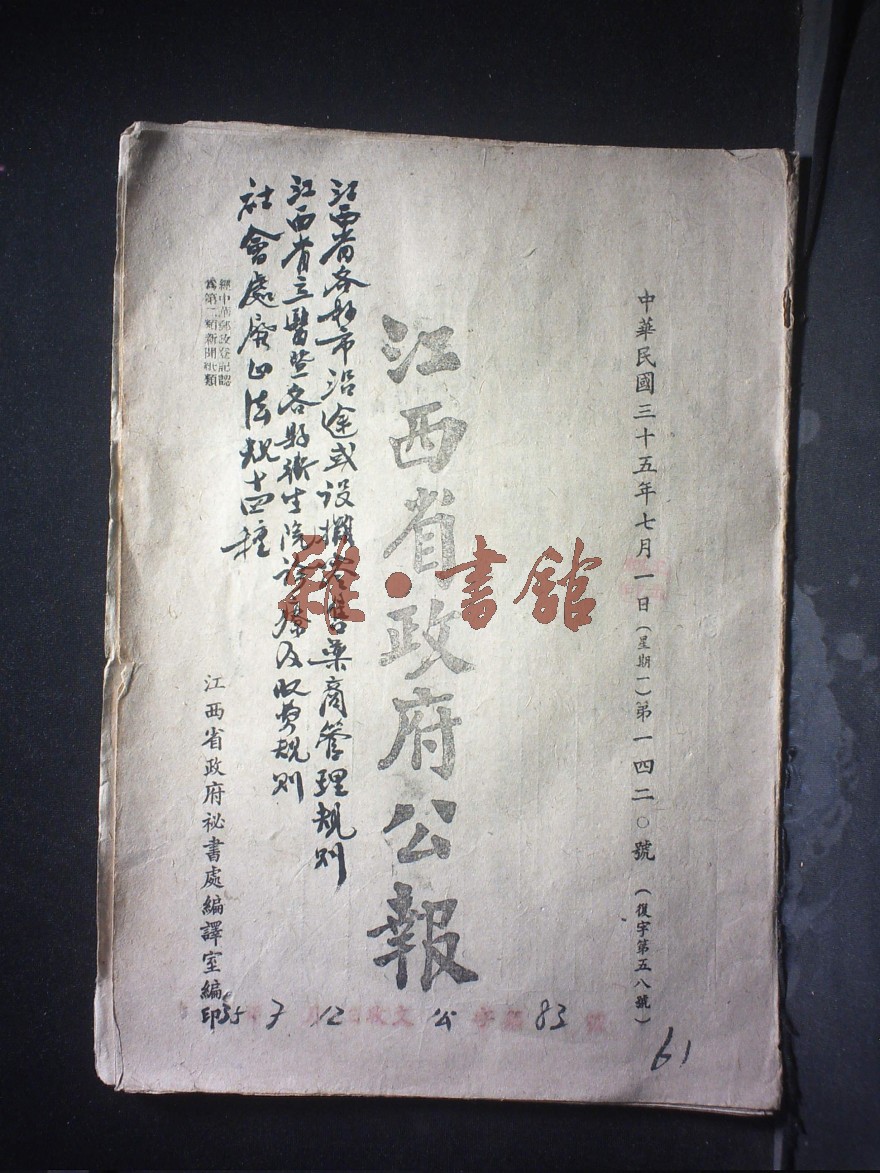 中華民國三十五年七月一日(星期一)第一四二〇號(復字第五八號)
江西省政府公報
江西省各縣市沿途或设攤零售藥商管理規則
江西省立醫院暨各縣衛生院診療及收費規則
社會處廢止法規十四種
經中華郵政登記認
為第二類新聞紙類
江西省政府祕書處編譯室編印
35 年 7 月 12 日收文 公 字第 83 號
61
雜·書館